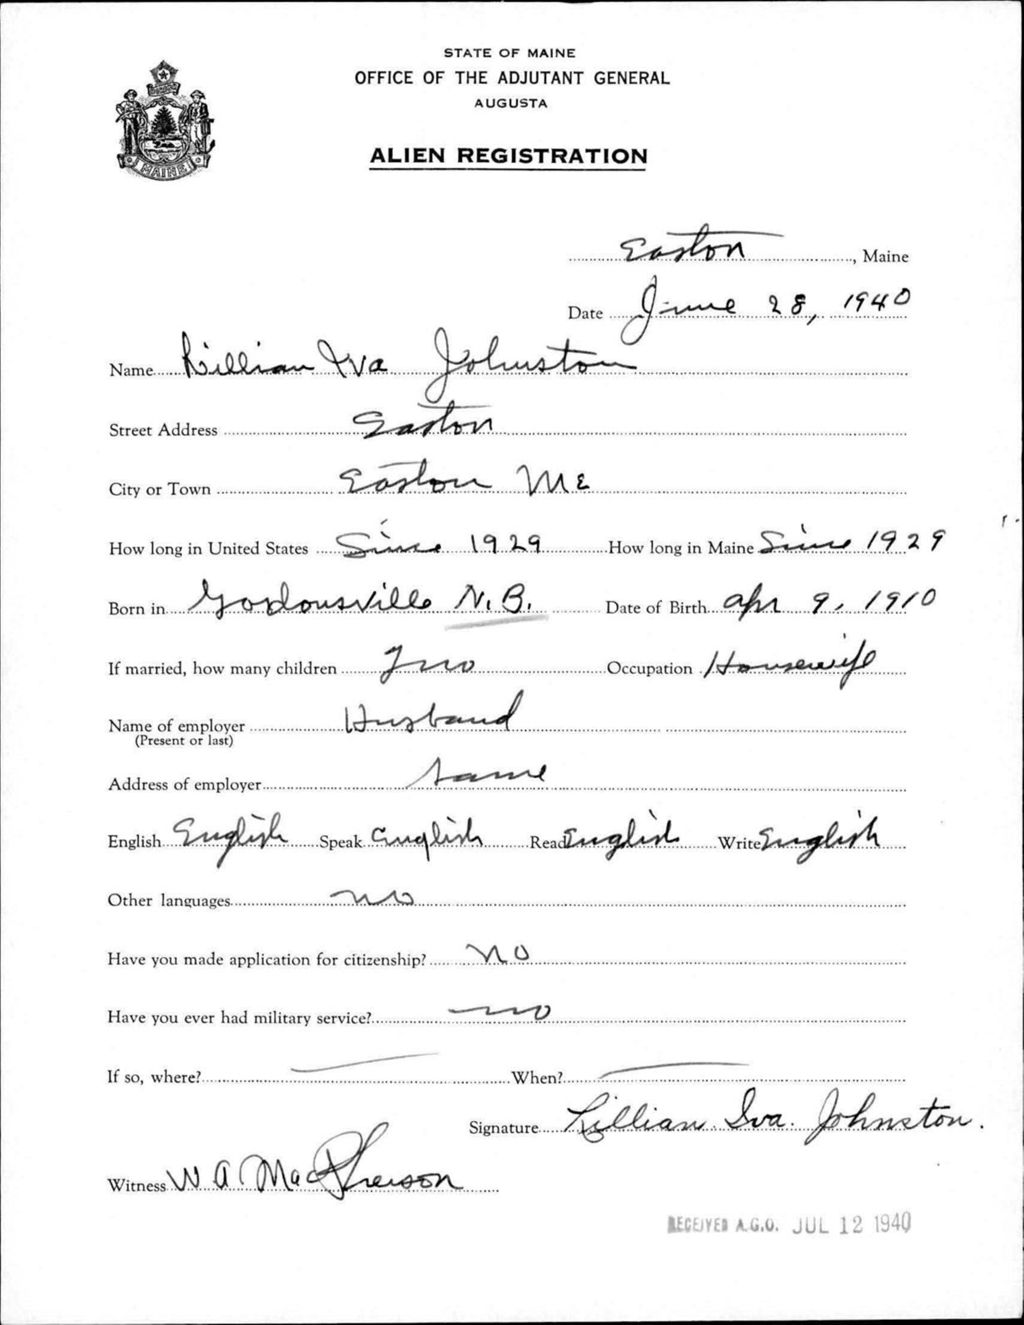 STATE OF MAINE
OFFICE OF THE ADJUTANT GENERAL
AUGUSTA
ALIEN REGISTRATION
MAINE
Easton, Maine
Date June 28, 1940
Name Lillian Iva Johnston
Street Address Easton
City or Town Easton Me
How long in United States Since 1929 How long in Maine Since 1929
Born in Gordonsville N.B. Date of Birth Apr 9, 1910
If married, how many children Two Occupation Housewife
Name of employer Husband
(Present or last)
Address of employer Same
English English Speak English Read English Write English
Other languages no
Have you made application for citizenship? No
Have you ever had military service? no
If so, where? When?
Signature Lillian Iva. Johnston.
Witness W A MacPherson
RECEIVED A.G.O. JUL 12 1940